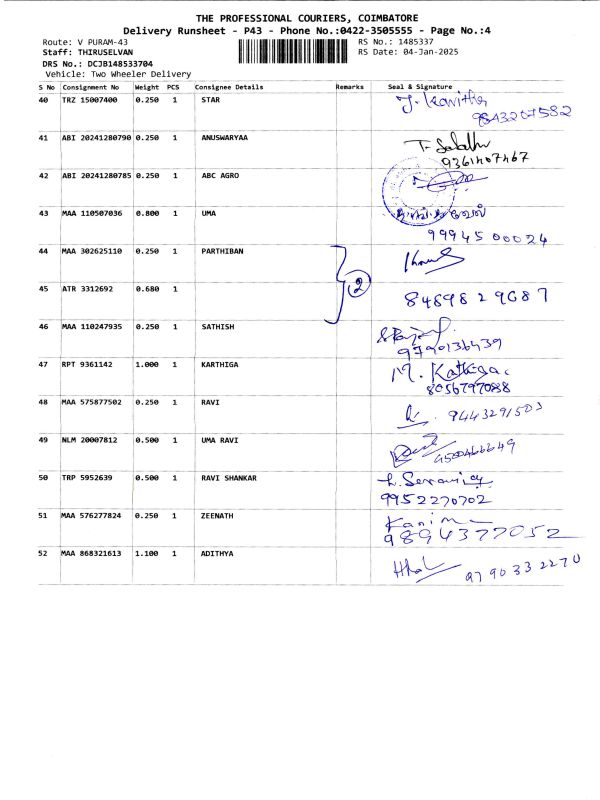 THE PROFESSIONAL COURIERS, COIMBATORE
Delivery Runsheet - P43 - Phone No.:0422-3505555 - Page No.:4
Route: V PURAM-43 RS No.: 1485337
Staff: THIRUSELVAN RS Date: 04-Jan-2025
DRS No.: DCJB148533704
Vehicle: Two Wheeler Delivery
S No Consignment No Weight PCS Consignee Details Remarks Seal & Signature
40 TRZ 15007400 0.250 1 STAR J. Kavitha
9843207582
41 ABI 20241280790 0.250 1 ANUSWARYAA
9361407467
42 ABI 20241280785 0.250 1 ABC AGRO
43 MAA 110507036 0.800 1 UMA
99945 00024
44 MAA 302625110 0.250 1 PARTHIBAN
2
45 ATR 3312692 0.680 1 8489829087
46 MAA 110247935 0.250 1 SATHISH
9790136439
47 RPT 9361142 1.000 1 KARTHIGA M. Kathiga
8056797088
48 MAA 575877502 0.250 1 RAVI 9443291503
49 NLM 20007812 0.500 1 UMA RAVI
50 TRP 5952639 0.500 1 RAVI SHANKAR
9952270702
51 MAA 576277824 0.250 1 ZEENATH
9894377052
52 MAA 868321613 1.100 1 ADITHYA 9790332270